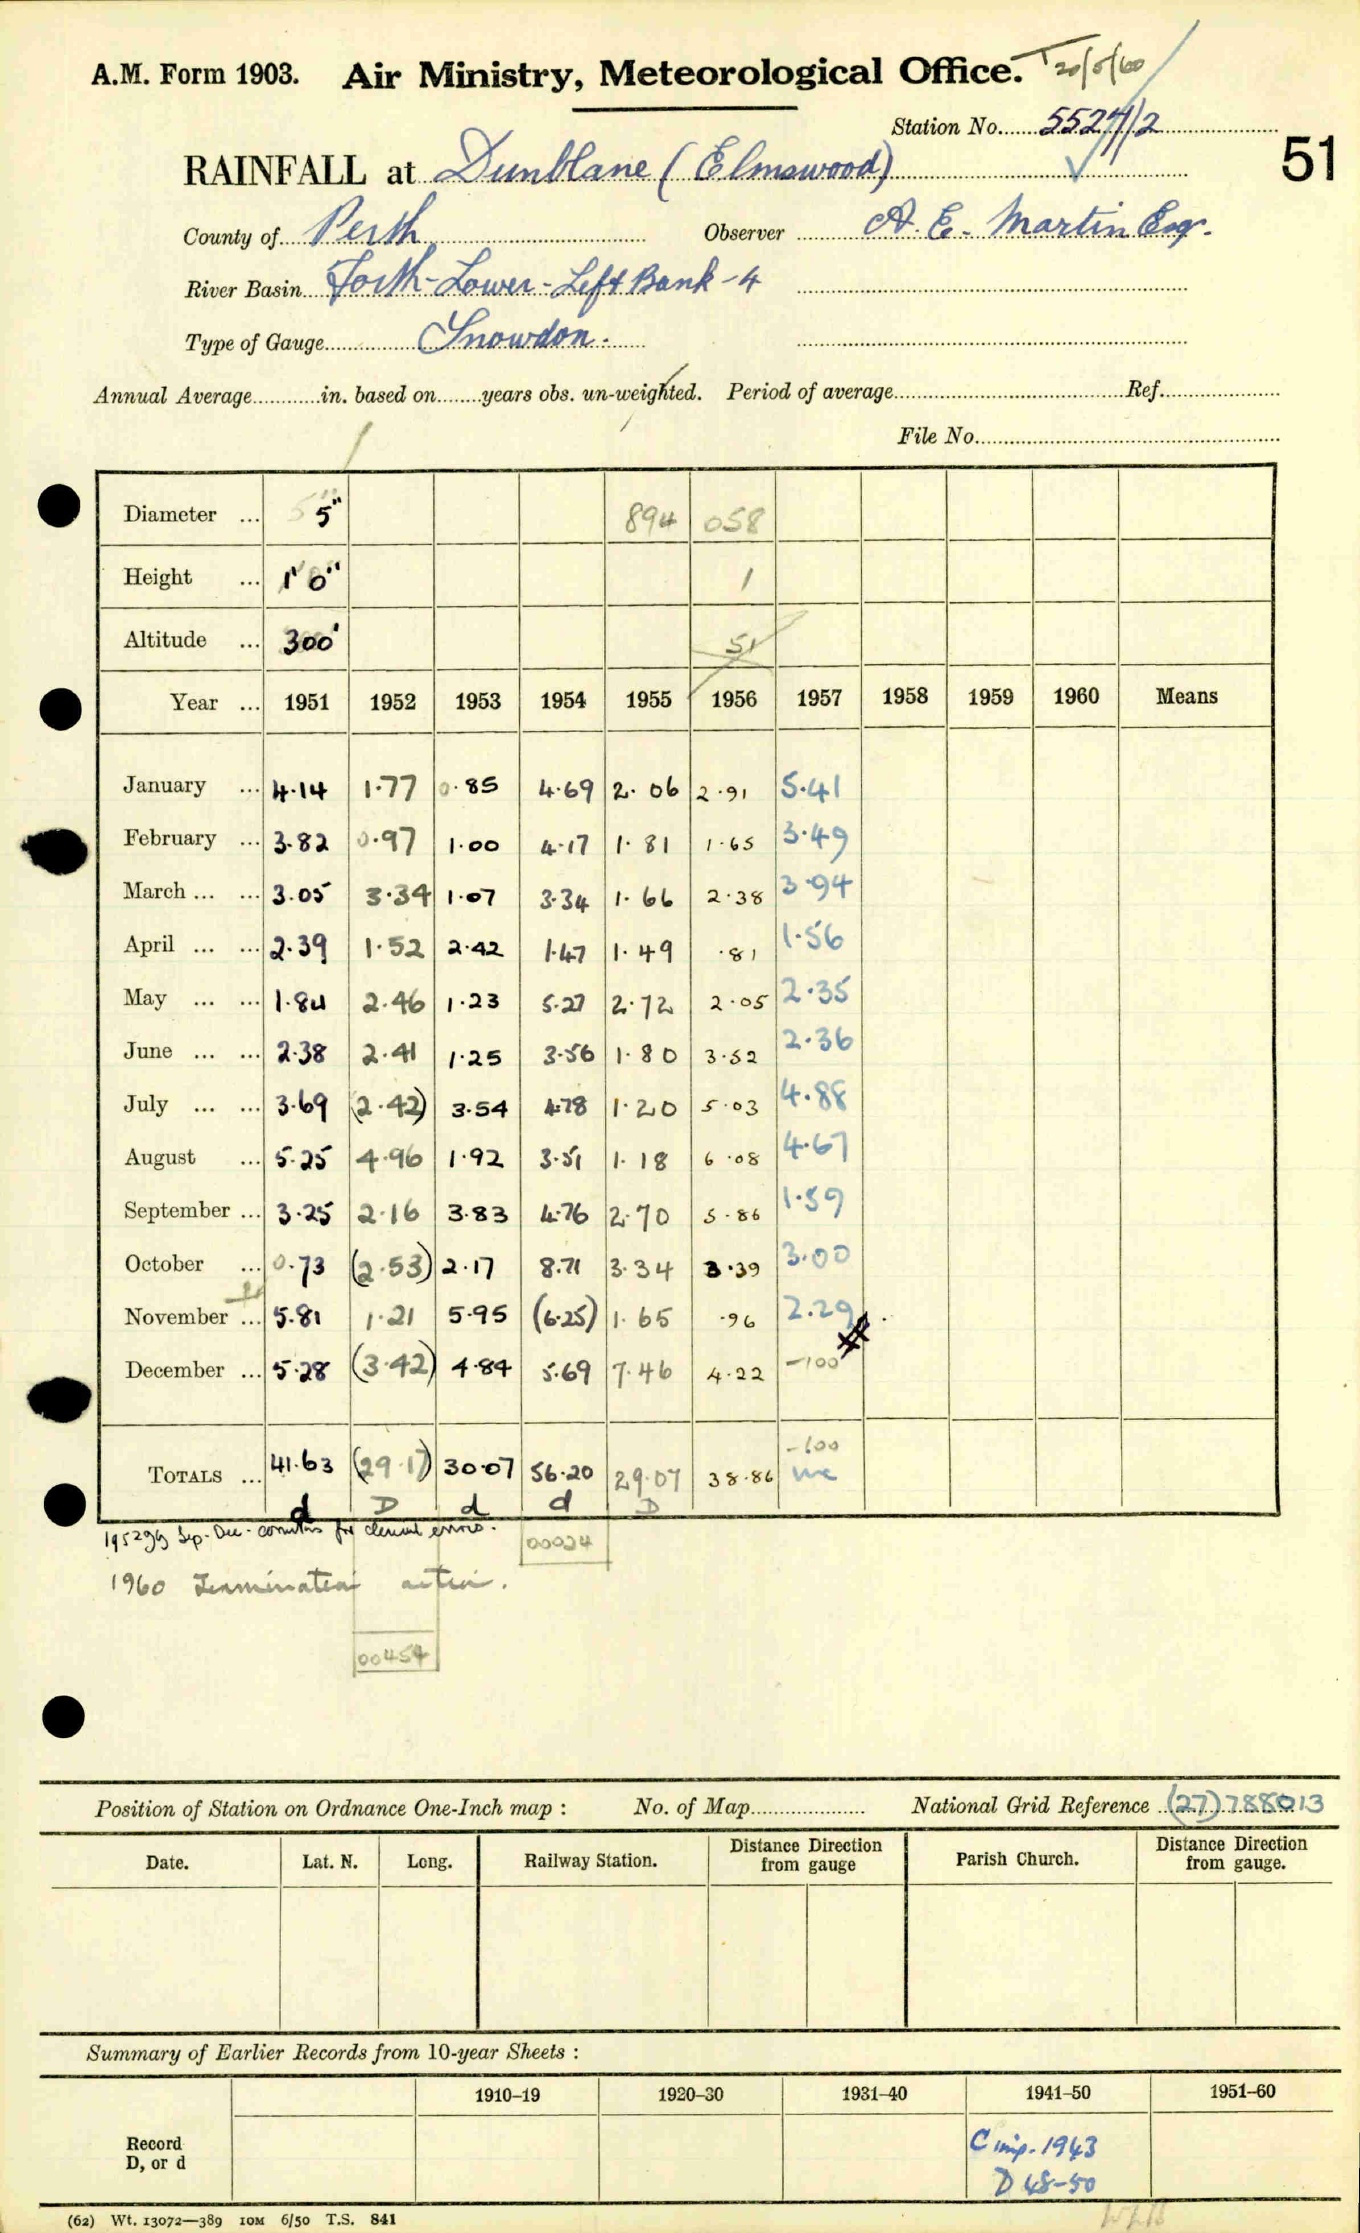 A.M. Form 1903. Air Ministry, Meteorological Office. T 20/5/60
Station No. 5524/2
51
RAINFALL at Dunblane (Elmswood)
County of Perth Observer A. E. Martin Esq.
River Basin Forth-Lower-Left Bank-4
Type of Gauge Snowdon.
Annual Average in. based on years obs. un-weighted. Period of average Ref.
File No.
Diameter ... 5" 894 058
Height ... 1' 0" 1
Altitude ... 300' 51
Year ... 1951 1952 1953 1954 1955 1956 1957 1958 1959 1960 Means
January ... 4.14 1.77 0.85 4.69 2.06 2.91 5.41
February ... 3.82 0.97 1.00 4.17 1.81 1.65 3.49
March ... ... 3.05 3.34 1.07 3.34 1.66 2.38 3.94
April ... ... 2.39 1.52 2.42 1.47 1.49 .81 1.56
May ... ... 1.84 2.46 1.23 5.27 2.72 2.05 2.35
June ... ... 2.38 2.41 1.25 3.56 1.80 3.52 2.36
July ... ... 3.69 (2.42) 3.54 4.78 1.20 5.03 4.88
August ... 5.25 4.96 1.92 3.51 1.18 6.08 4.67
September ... 3.25 2.16 3.83 4.76 2.70 5.86 1.59
October ... 0.73 (2.53) 2.17 8.71 3.34 3.39 3.00
November ... 5.81 1.21 5.95 (6.25) 1.65 .96 2.29
December ... 5.28 (3.42) 4.84 5.69 7.46 4.22 -100
-100
TOTALS ... 41.63 (29.17) 30.07 56.20 29.07 38.86 inc
d D d d D
Sep-Dec- for clerical errors.
00024
1960 Termination action.
00454
Position of Station on Ordnance One-Inch map : No. of Map National Grid Reference (27)788013
Date. Lat. N. Long. Railway Station. Distance Direction from gauge Parish Church. Distance Direction from gauge.
Summary of Earlier Records from 10-year Sheets :
1910–19 1920–30 1931–40 1941–50 1951–60
Record D, or d
C inp. 1943
D 48-50
(62) Wt. 13072—389 10M 6/50 T.S. 841